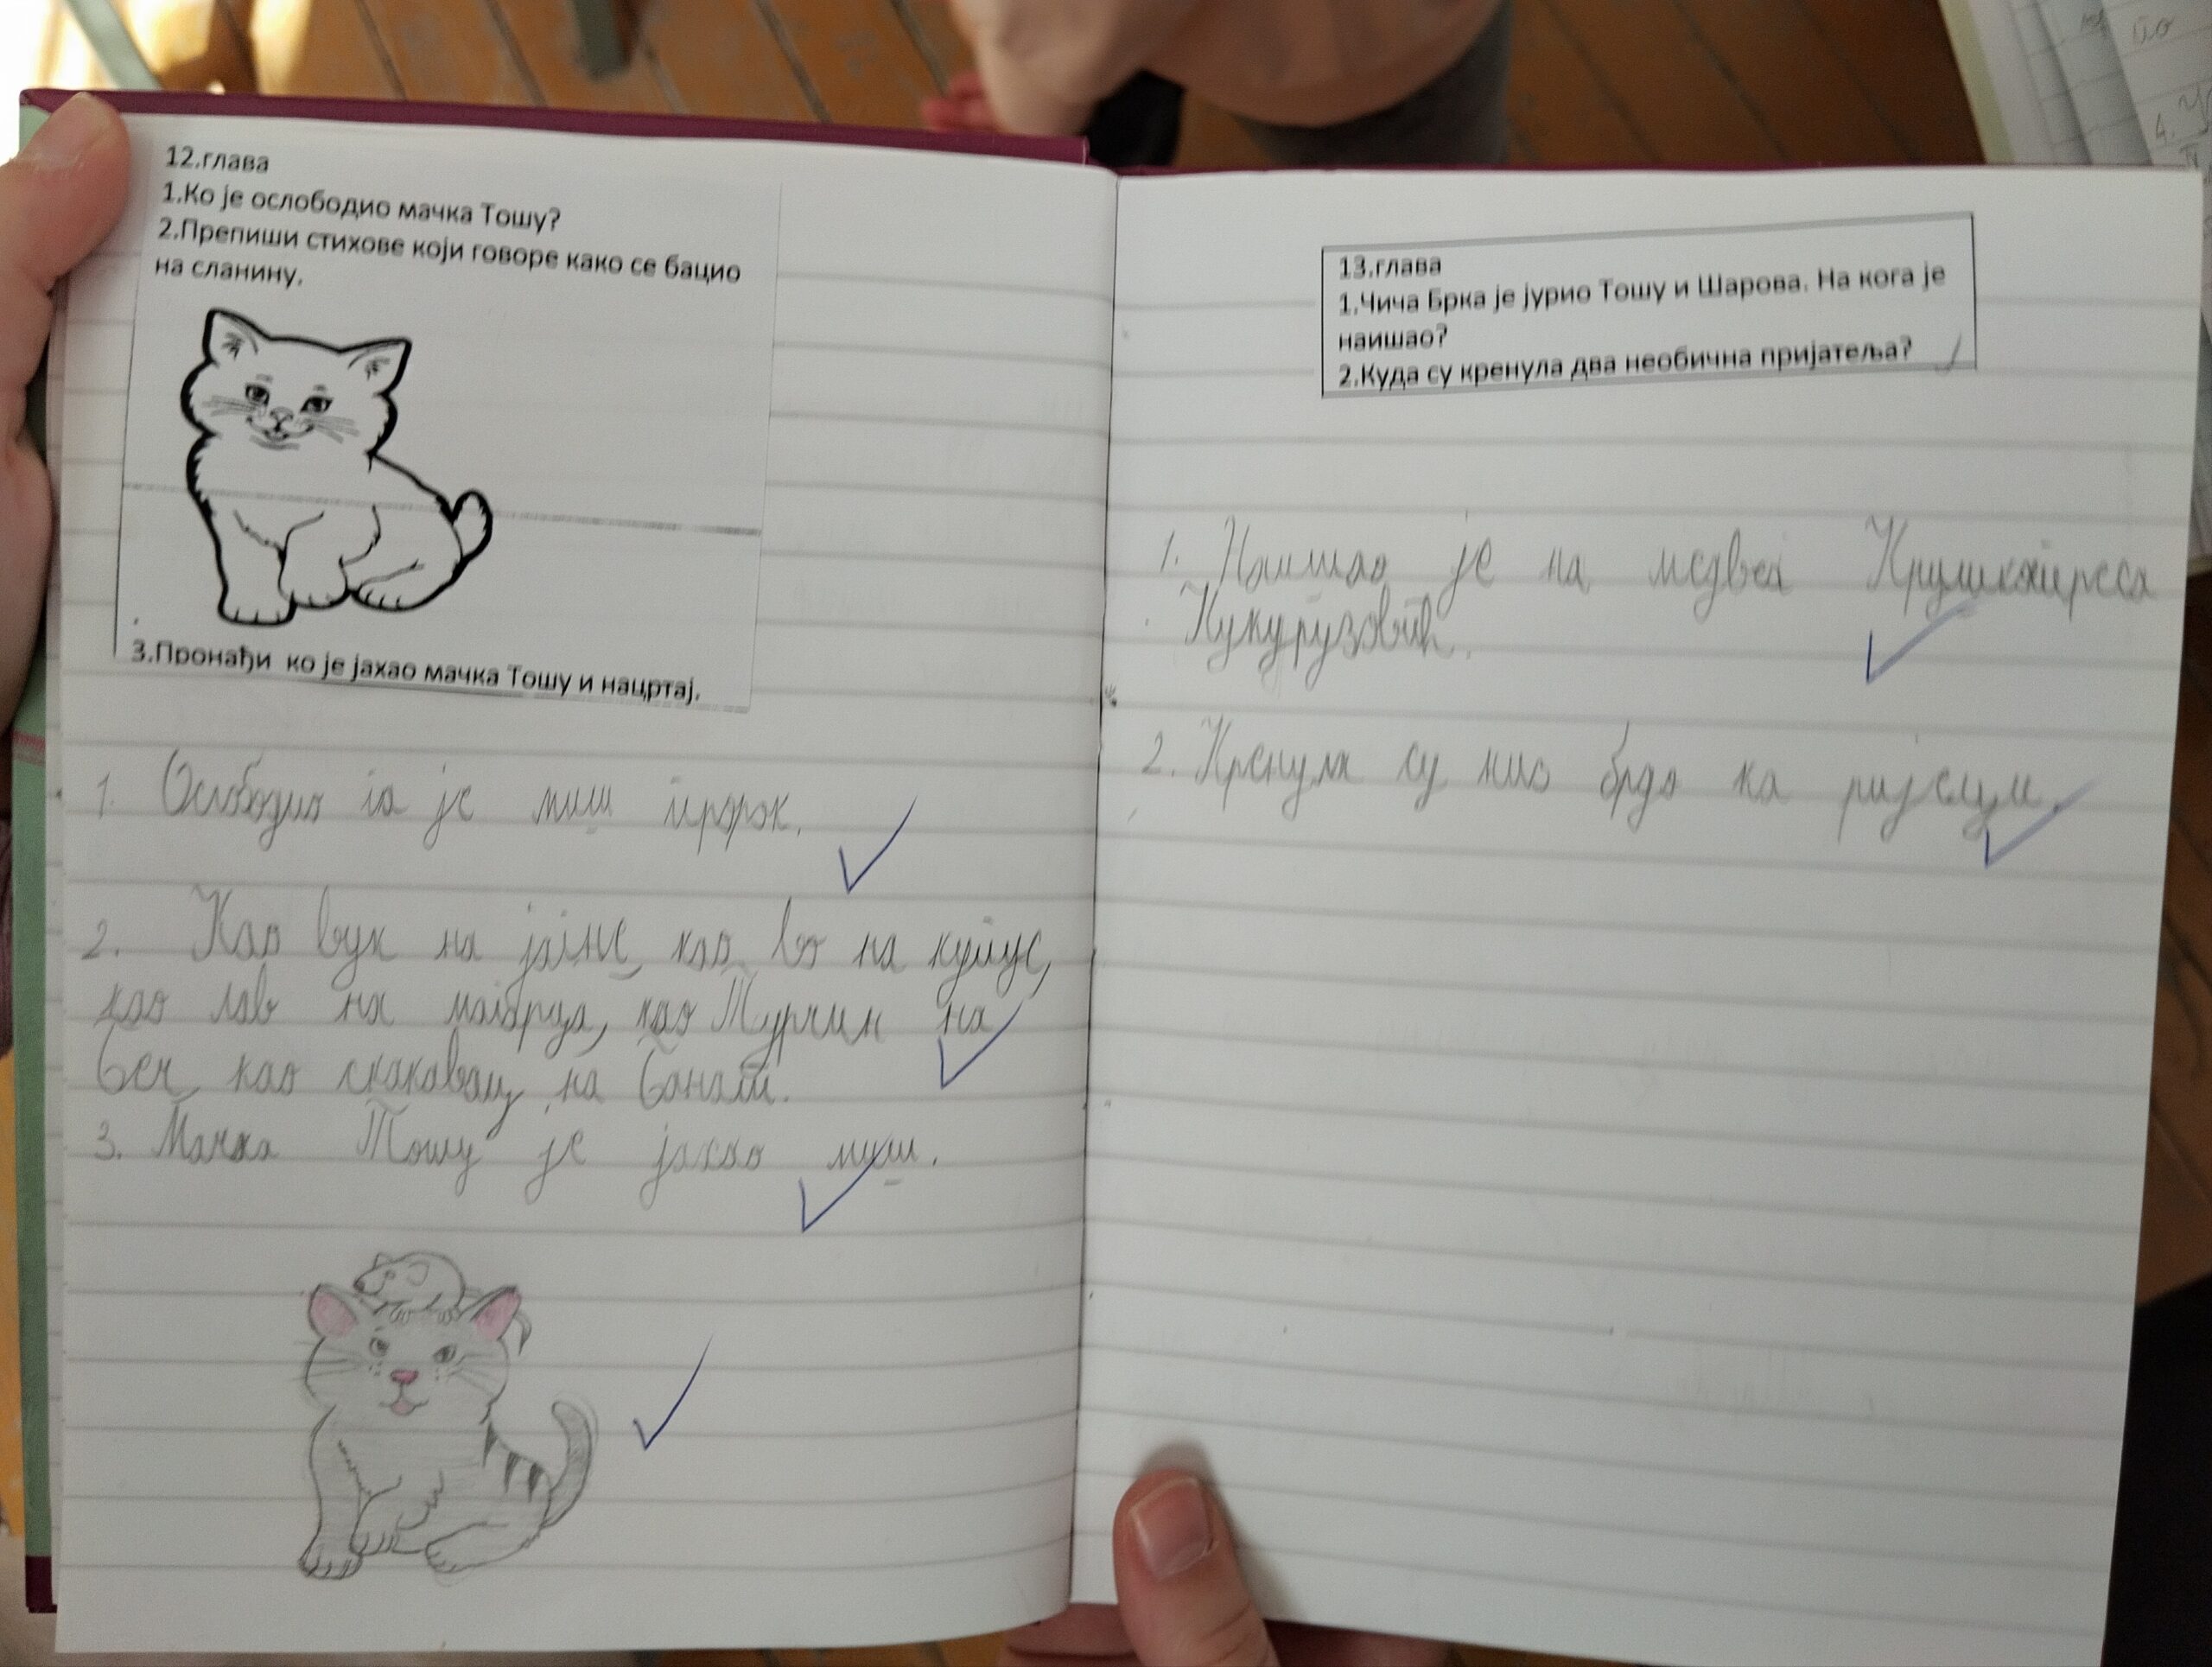 12.глава
1.Ко је ослободио мачка Тошу?
2.Препиши стихове који говоре како се бацио
на сланину.
3.Пронађи ко је јахао мачка Тошу и нацртај.
1. Ослободио га је миш пророк.
2. Као вук на јагње, као во на купус,
као лав на магарца, као Турчин на
Беч, као скакавац на Банат.
3. Мачка Тошу је јахао миш.
13.глава
1.Чича Брка је јурио Тошу и Шарова. На кога је
наишао?
2.Куда су кренула два необична пријатеља?
1. Наишао је на медведа Крушкотреса
Кукурузовић.
2. Кренули су низ брдо ка ријеци.